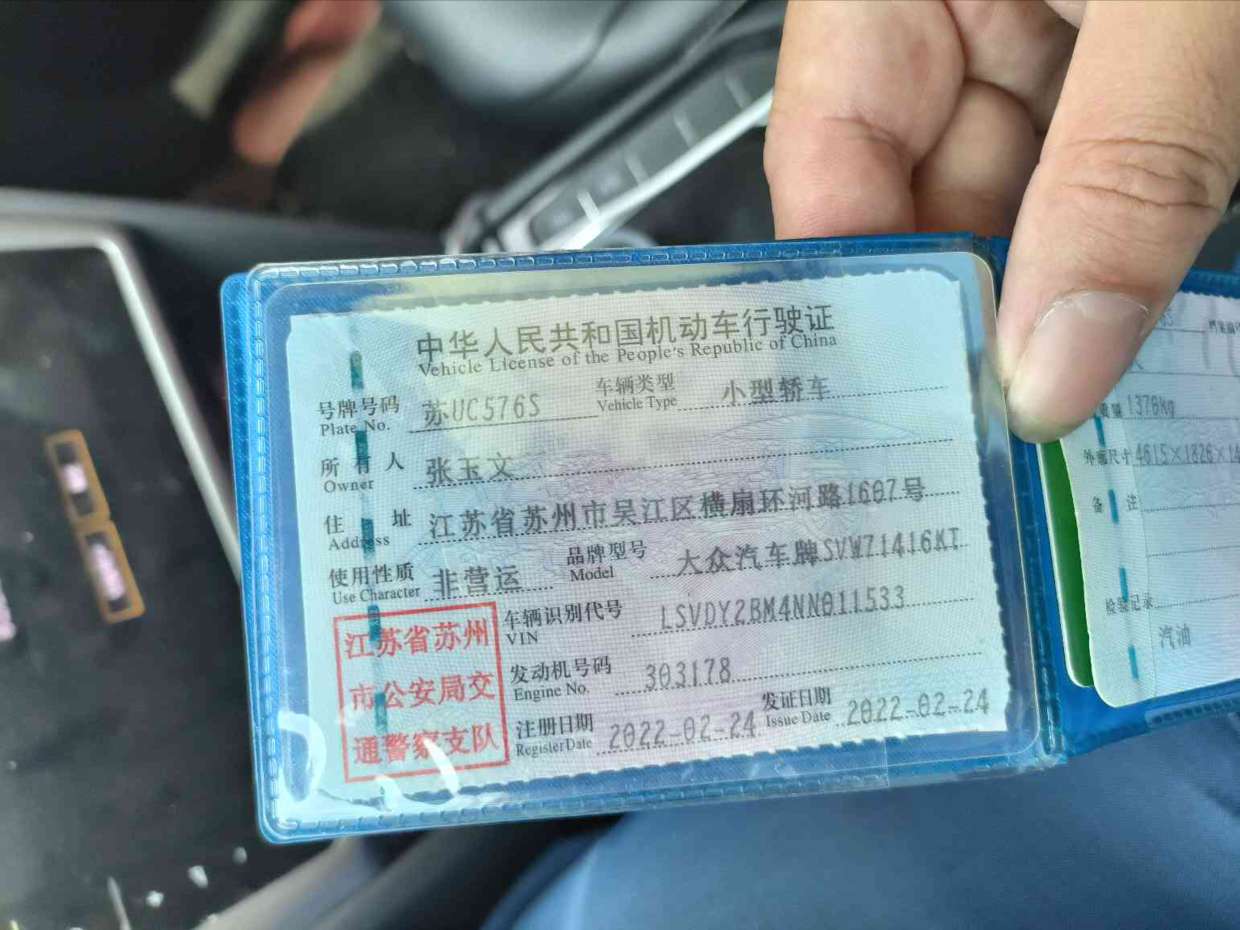 中华人民共和国机动车行驶证
Vehicle License of the People's Republic of China
号牌号码 苏UC576S 车辆类型 小型轿车
Plate No. Vehicle Type
所有人 张玉文
Owner
住址 江苏省苏州市吴江区横扇环河路1607号
Address
使用性质 非营运 品牌型号 大众汽车牌SVW71416KT
Use Character Model
江苏省苏州
市公安局交
通警察支队
车辆识别代号 LSVDY2BM4NN011533
VIN
发动机号码 303178
Engine No.
注册日期 2022-02-24 发证日期 2022-02-24
Register Date Issue Date
1378kg
外廓尺寸 4615×1826×14
备注
检验记录
汽油